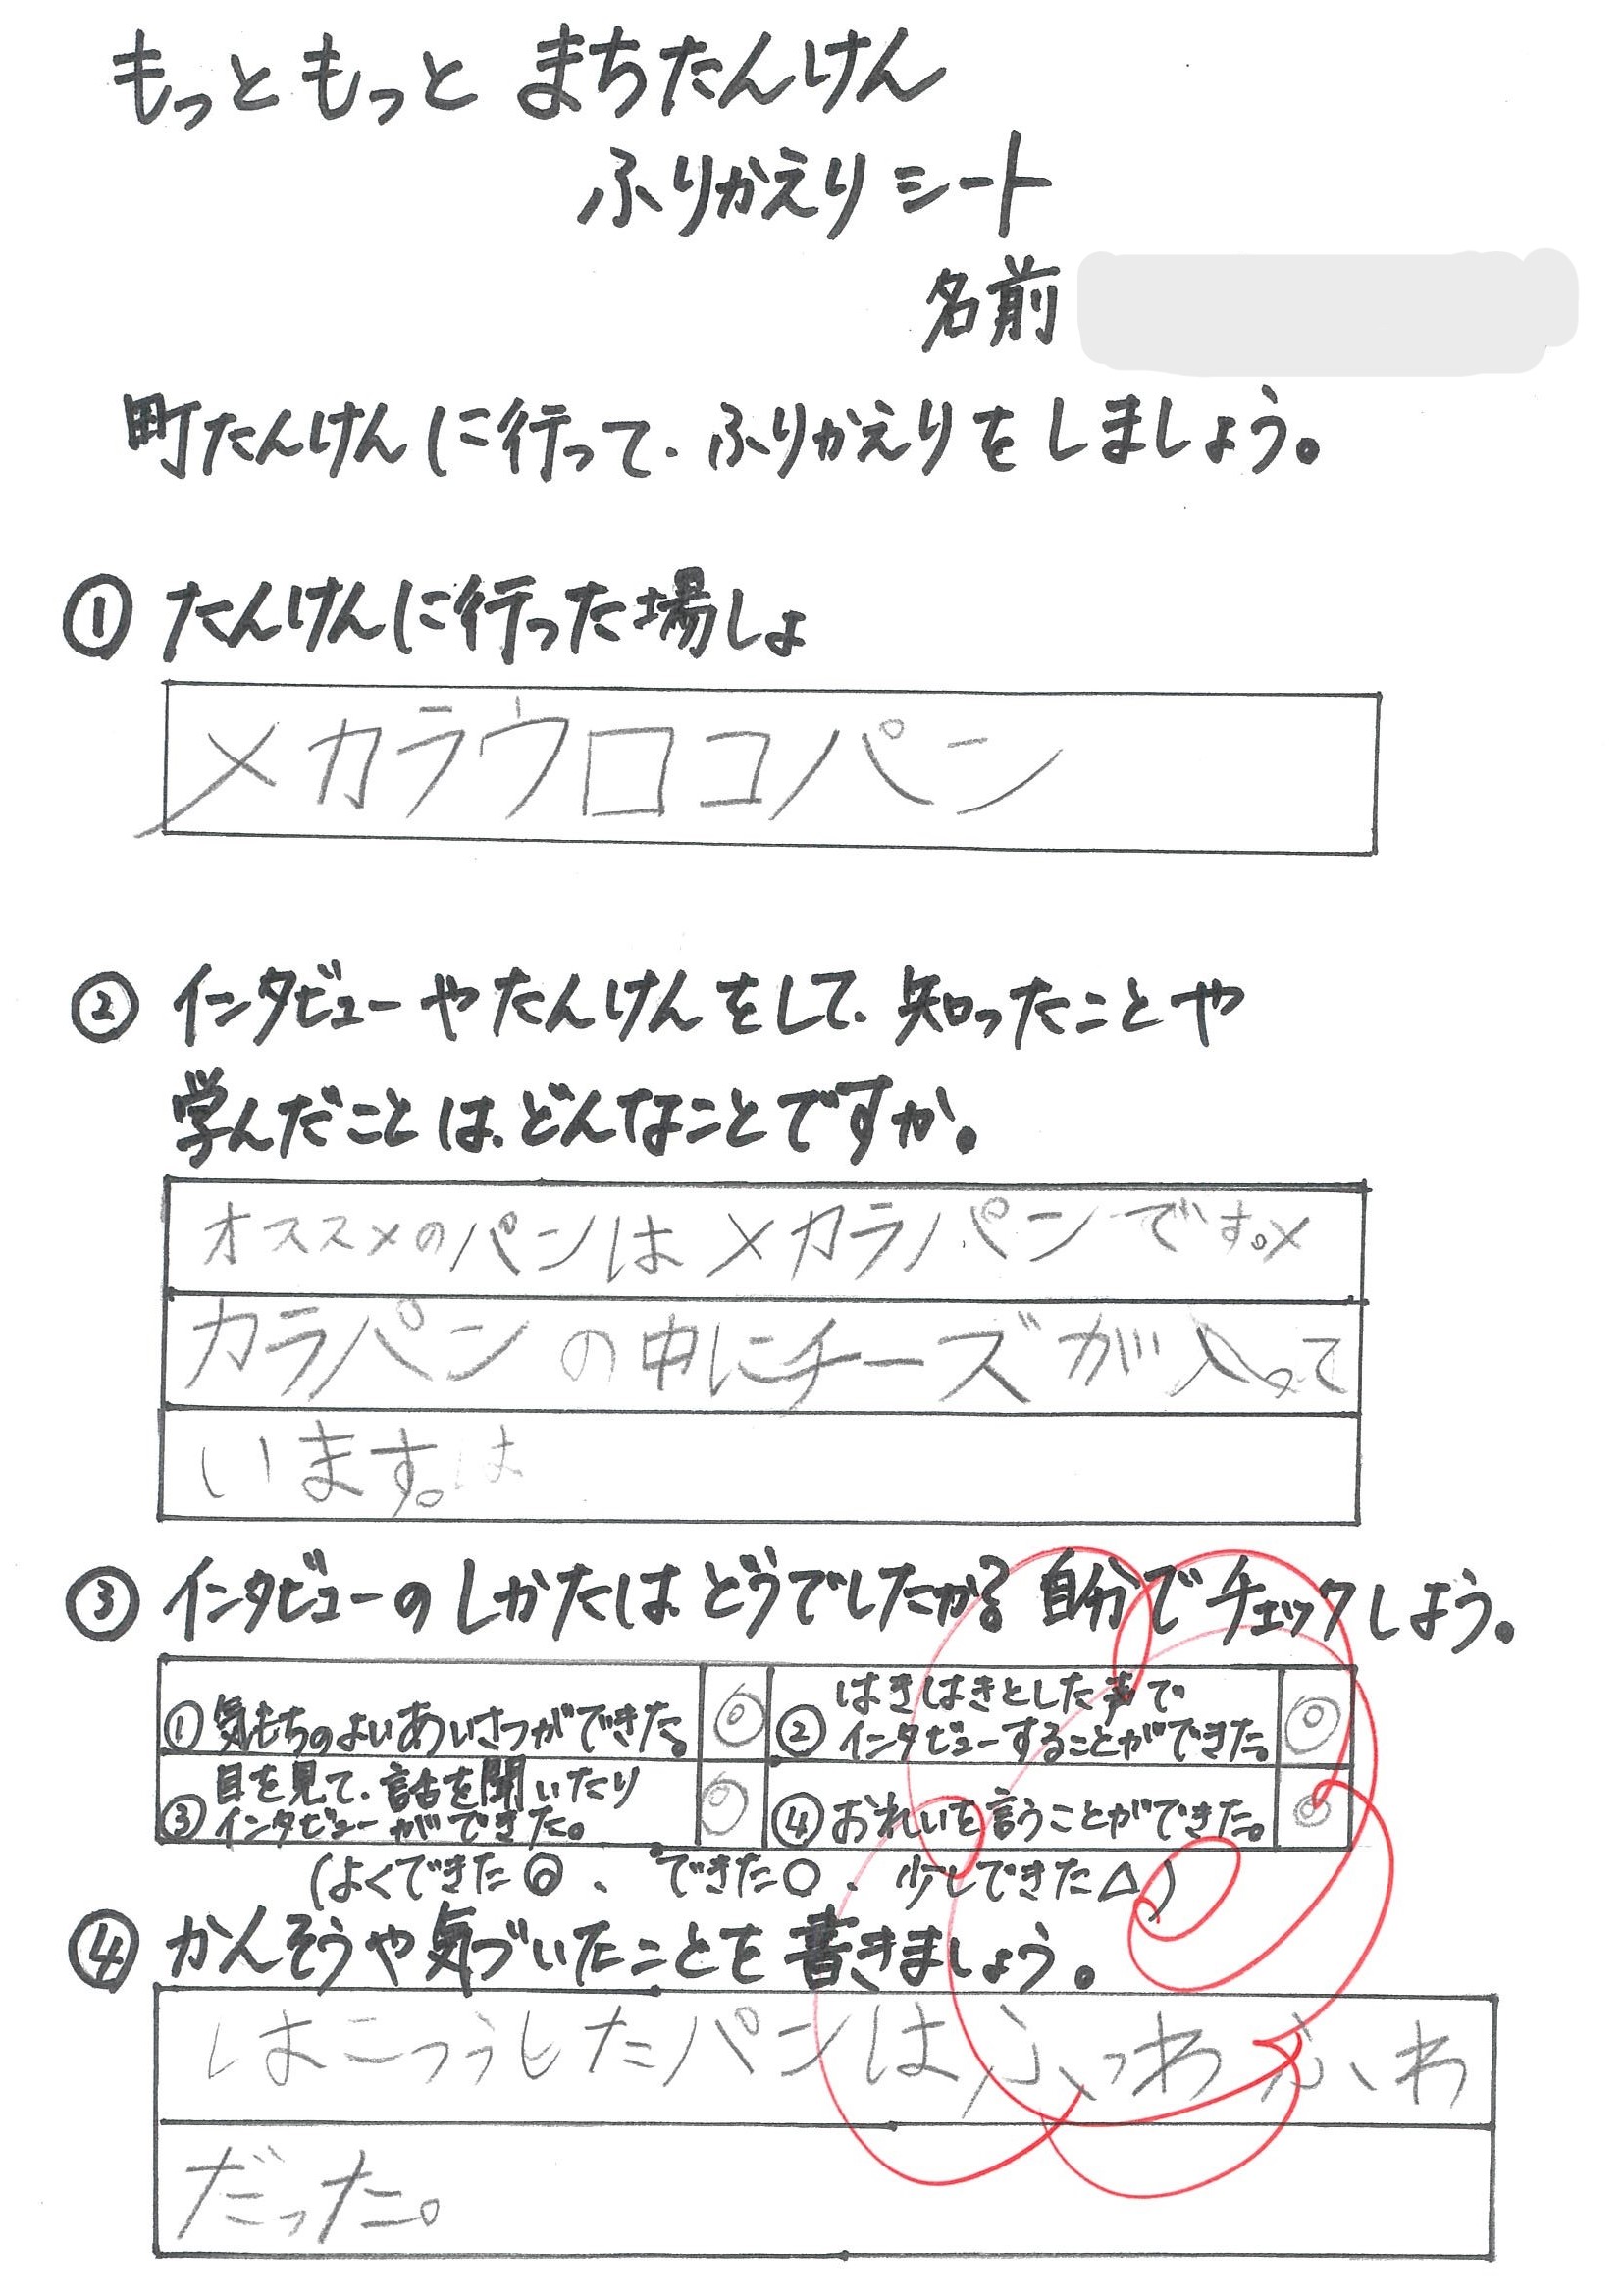 もっともっと まちたんけん
ふりかえりシート
名前
町たんけんに行って、ふりかえりをしましょう。
① たんけんに行った場しょ
メカラウロコパン
② インタビューやたんけんをして、知ったことや
学んだことは、どんなことですか。
オススメのパンはメカラパンです。メ
カラパンの中にチーズが入って
います。は
③ インタビューのしかたは、どうでしたか？自分でチェックしよう。
①気もちのよいあいさつができた。 ◎
②はきはきとした声で
インタビューすることができた。 ◎
③目を見て、話を聞いたり
インタビューができた。 ◎
④おれいを言うことができた。 ◎
(よくできた◎、できた○、少しできた△)
④ かんそうや気づいたことを書きましょう。
はこうしたパンはふっわふわ
だった。